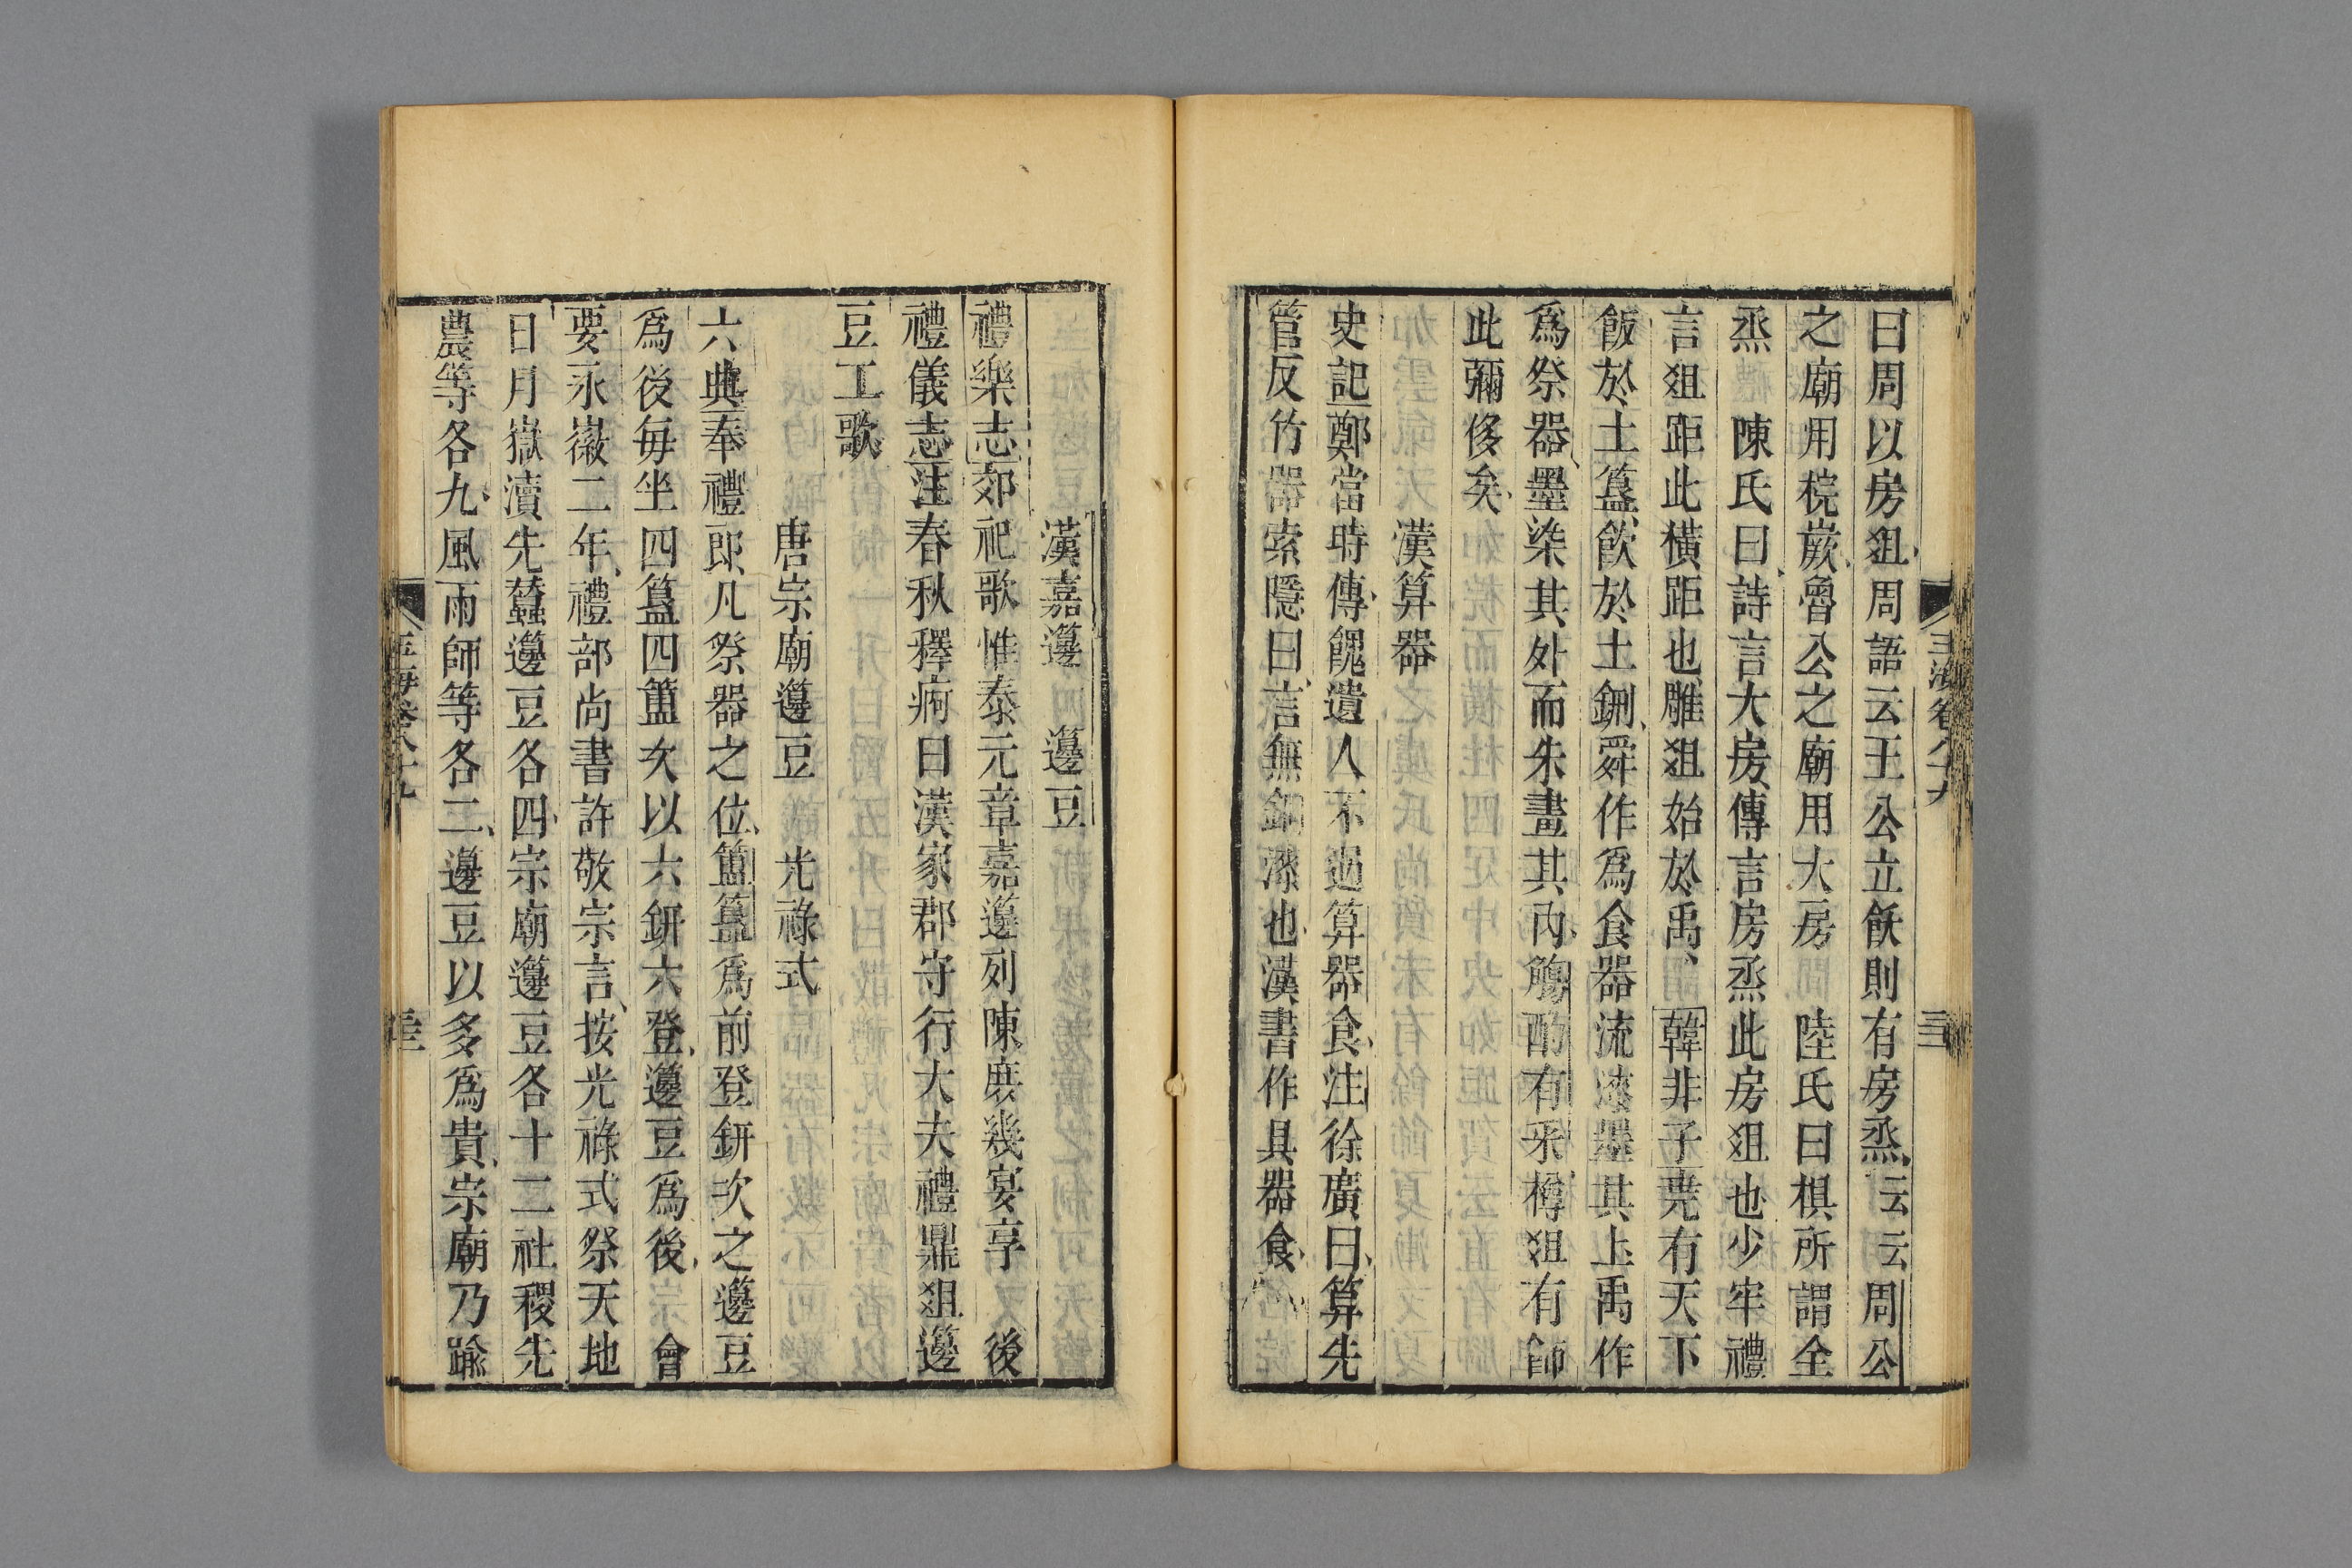 曰周以房俎周語云王公立飫則有房烝云云周公
之廟用梡嶡魯公之廟用大房 陸氏曰椇所謂全
烝 陳氏曰詩言大房傳言房烝此房俎也少牢禮
言俎距此橫距也雕俎始於禹 韓非子堯有天下
飯於土簋飲於土鉶舜作爲食器流漆墨其上禹作
爲祭器墨染其外而朱畫其內觴酌有采樽俎有飾
此彌侈矣
漢算器
史記鄭當時傳餽遺人不過算器食注徐廣曰算先
管反竹器索隱曰言無銅漆也漢書作具器食
玉海卷八十九
漢嘉籩 籩豆
禮樂志郊祀歌惟泰元章嘉籩列陳庶幾宴享 後
禮儀志注春秋釋痾曰漢家郡守行大夫禮鼎俎籩
豆工歌
唐宗廟籩豆 光祿式
六典奉禮郎凡祭器之位簠簋爲前登鉶次之籩豆
爲後每坐四簋四簠次以六鉶六登籩豆爲後 會
要永徽二年禮部尚書許敬宗言按光祿式祭天地
日月嶽瀆先蠶籩豆各四宗廟籩豆各十二社稷先
農等各九風雨師等各二籩豆以多爲貴宗廟乃踰
玉海卷八十九